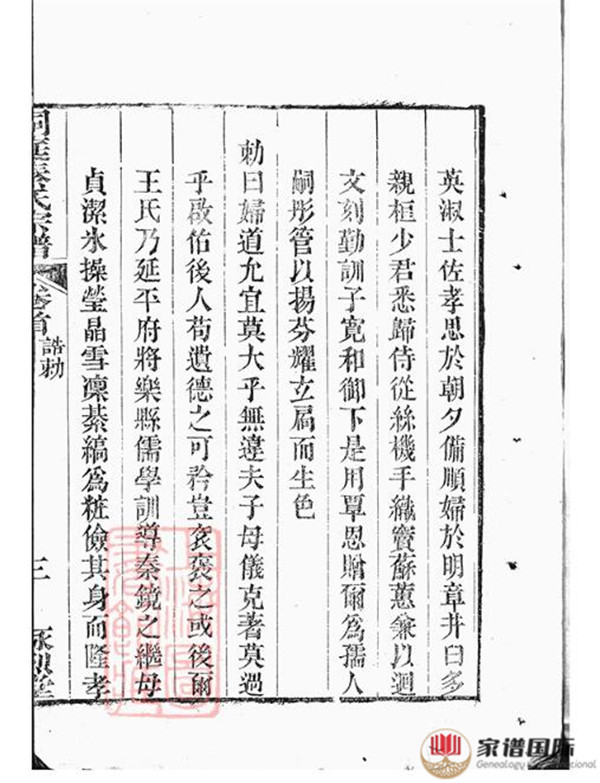 英淑士佐孝思於朝夕備順婦於明章井臼多
親桓少君悉歸侍從絲機手織竇蘇蕙兼以迴
文刻勤訓子寬和御下是用覃恩贈爾為孺人
嗣彤管以揚芬耀立扃而生色
勅曰婦道允宜莫大乎無違夫子母儀克著莫過
乎啟佑後人苟遺德之可矜豈袞褒之或後爾
王氏乃延平府將樂縣儒學訓導秦鏡之繼母
貞潔氷操瑩晶雪凜綦縞為粧儉其身而隆孝
洞庭秦氏宗譜
卷首
誥勅
三
堂
家谱国际
Genealogy International